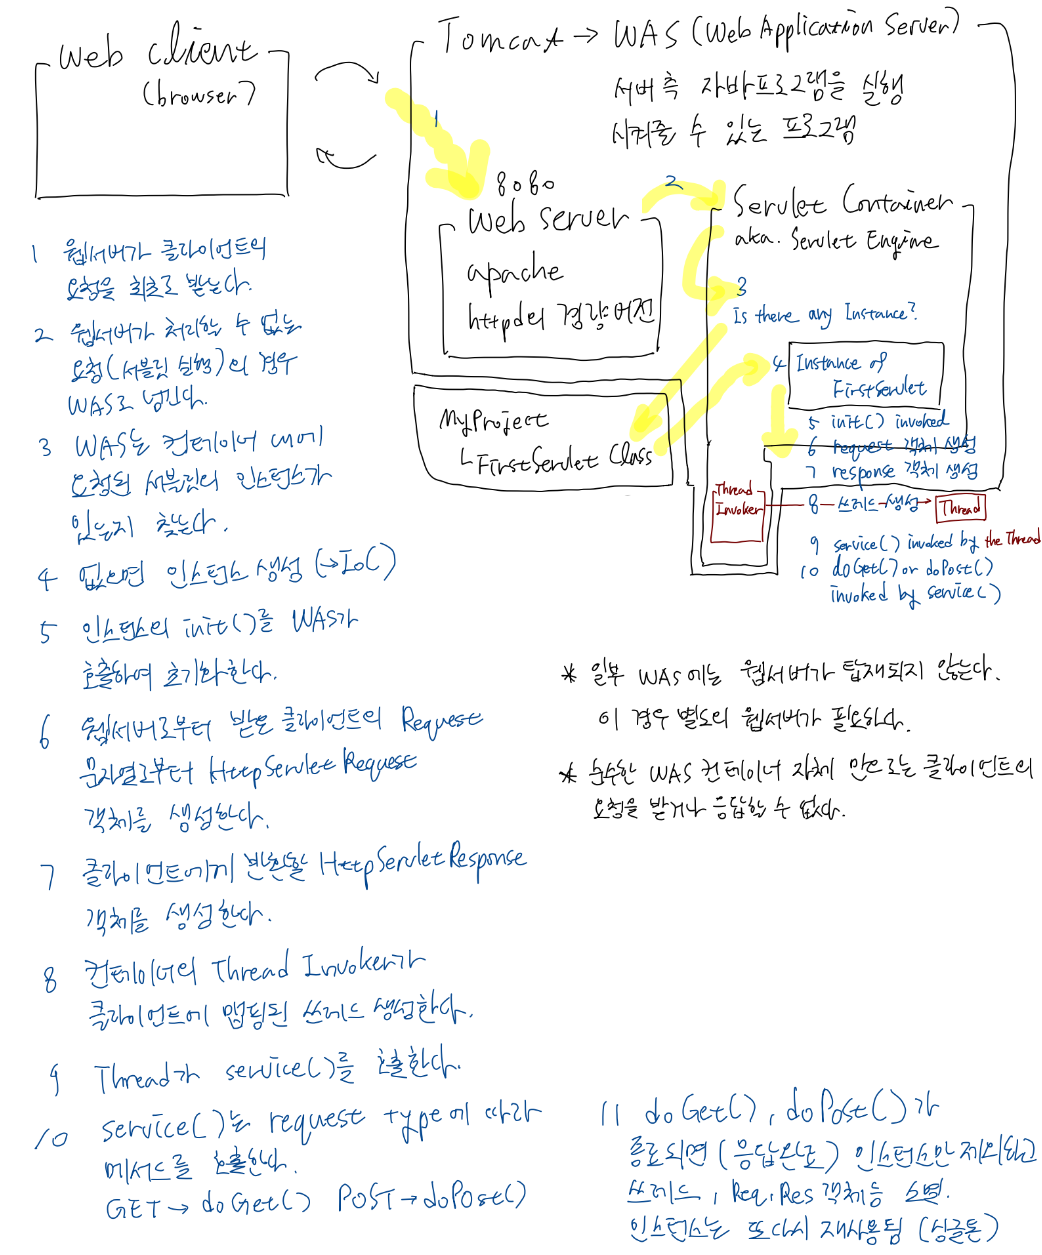 Web client
(browser)
Tomcat → WAS (Web Application Server)
서버 측 자바프로그램을 실행
시켜줄 수 있는 프로그램
1
8080
Web Server
apache
httpd의 경량버전
2
Servlet Container
aka. Servlet Engine
3
Is there any Instance?
4 Instance of
FirstServlet
MyProject
└ FirstServlet Class
5 init() invoked
6 request 객체 생성
7 response 객체 생성
Thread
Invoker
8 쓰레드 생성 → Thread
9 service() invoked by the Thread
10 doGet() or doPost()
invoked by service()
1 웹서버가 클라이언트의
요청을 최초로 받는다.
2 웹서버가 처리할 수 없는
요청(서블릿 실행)의 경우
WAS로 넘긴다.
3 WAS는 컨테이너 내에
요청된 서블릿의 인스턴스가
있는지 찾는다.
4 없으면 인스턴스 생성 (→IoC)
5 인스턴스의 init()를 WAS가
호출하여 초기화한다.
6 웹서버로부터 받은 클라이언트의 Request
문자열로부터 HttpServletRequest
객체를 생성한다.
7 클라이언트에게 반환할 HttpServletResponse
객체를 생성한다.
8 컨테이너의 Thread Invoker가
클라이언트에 맵핑된 쓰레드 생성한다.
9 Thread가 service()를 호출한다.
10 service()는 request type에 따라
메서드를 호출한다.
GET → doGet() POST → doPost()
* 일부 WAS에는 웹서버가 탑재되지 않는다.
이 경우 별도의 웹서버가 필요하다.
* 순수한 WAS 컨테이너 자체 만으로는 클라이언트의
요청을 받거나 응답할 수 없다.
11 doGet(), doPost()가
종료되면 (응답완료) 인스턴스만 제외하고
쓰레드, Req, Res 객체등 소멸.
인스턴스는 또다시 재사용됨 (싱글톤)